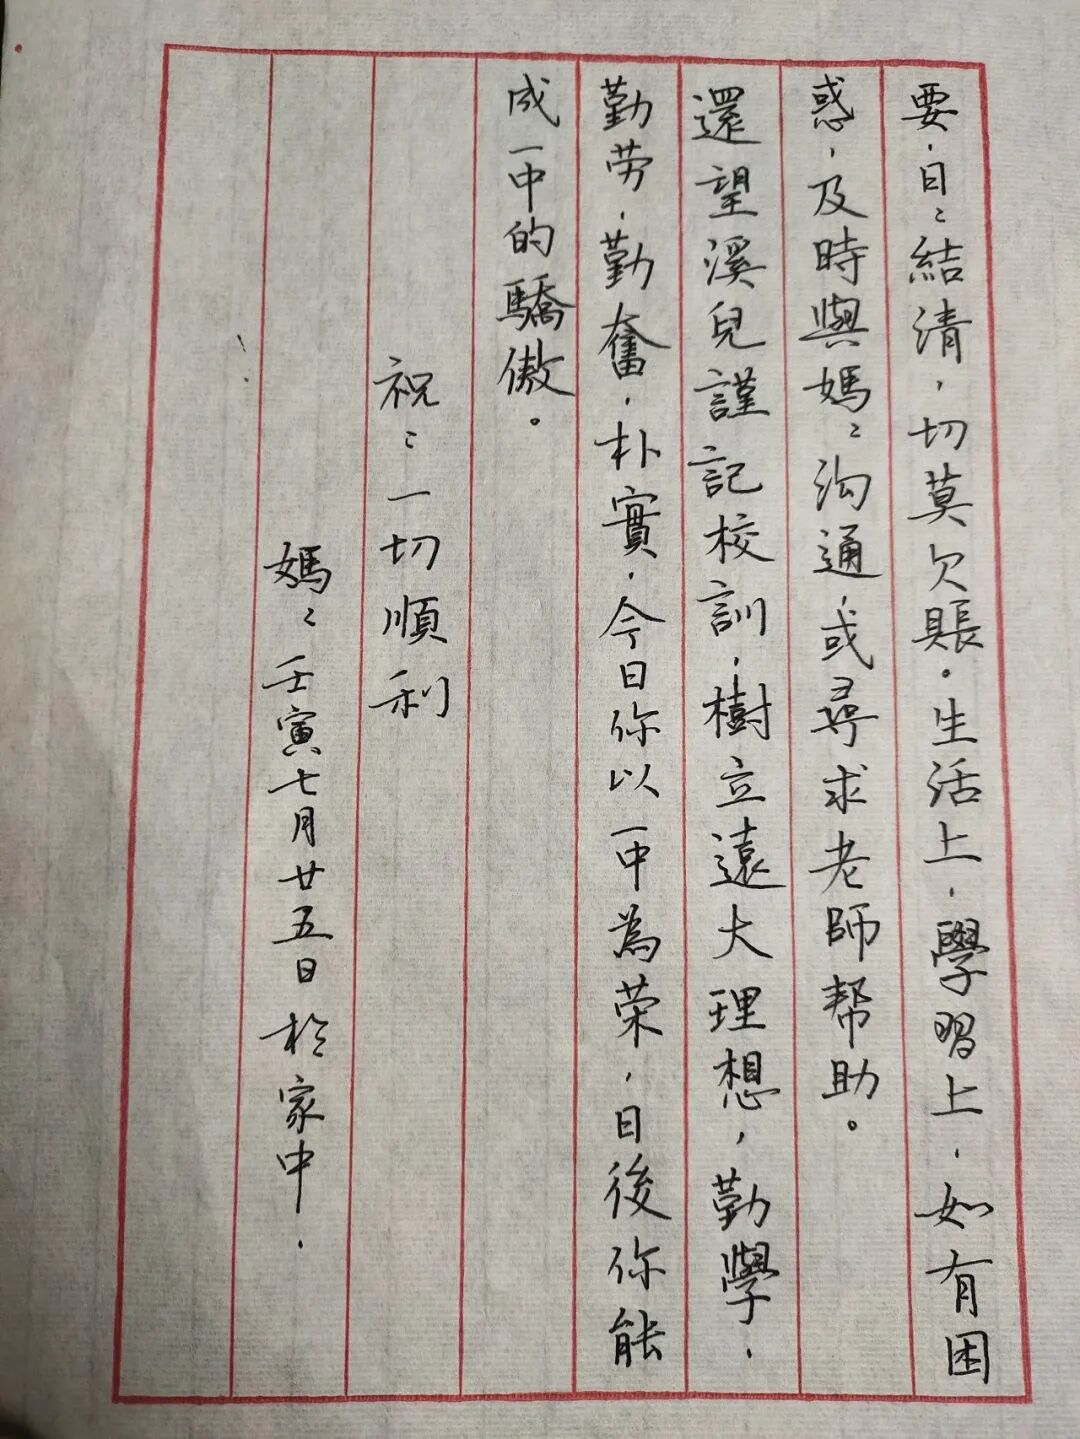 要，日〻結清，切莫欠賬。生活上，學習上，如有困
惑，及時與媽〻沟通，或尋求老師帮助。
還望溪兒謹記校訓，樹立遠大理想，勤學，
勤劳，勤奮，朴實，今日你以一中為荣，日後你能
成一中的驕傲。
祝〻一切順利
媽〻壬寅七月廿五日於家中.